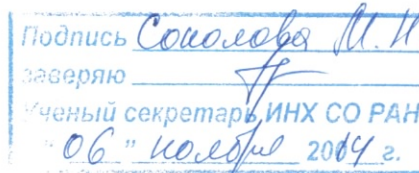 Подпись Соколова М. Н
заверяю
Ученый секретарь ИНХ СО РАН
"06" ноября 2014 г.